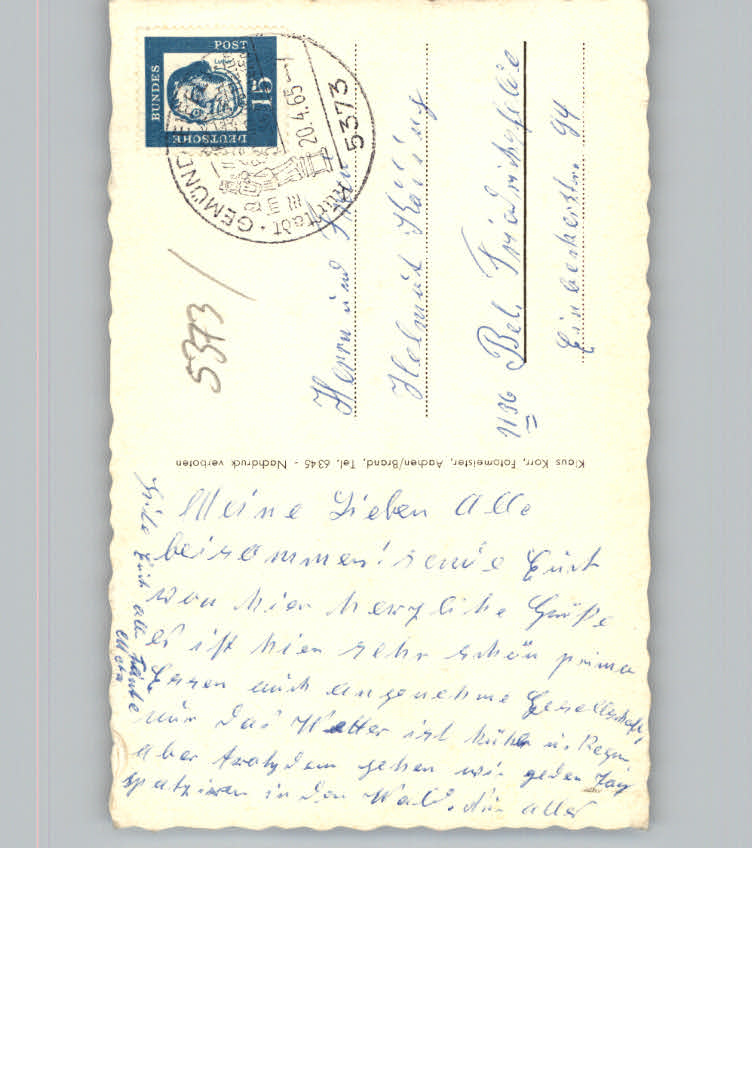 DEUTSCHE
BUNDES
POST
15
5373
20.4.65
GEMÜND
5373
Herrn und Frau
Helmut
1136 Bel. Friedrichsfelde
Einbeckerstr. 94
Klaus Korr, Fotomeister, Aachen/Brand, Tel. 6345 - Nachdruck verboten
Meine Lieben Alle
beisammen! sende Euch
von hier herzliche Grüße
es ist hier sehr schön prima
Essen auch angenehme Gesellschaft,
nur das Wetter ist kühl u. Regen
aber trotzdem gehen wir jeden Tag
spatziren in den Wald. Für alles
Euch alle Tante
Meta